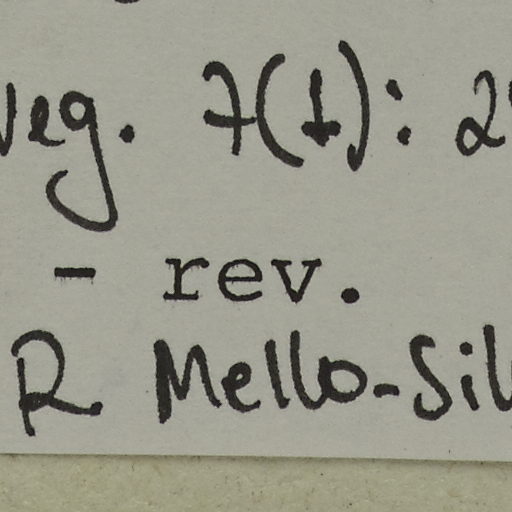 veg. 7(1): 2
- rev.
R Mello-Sil